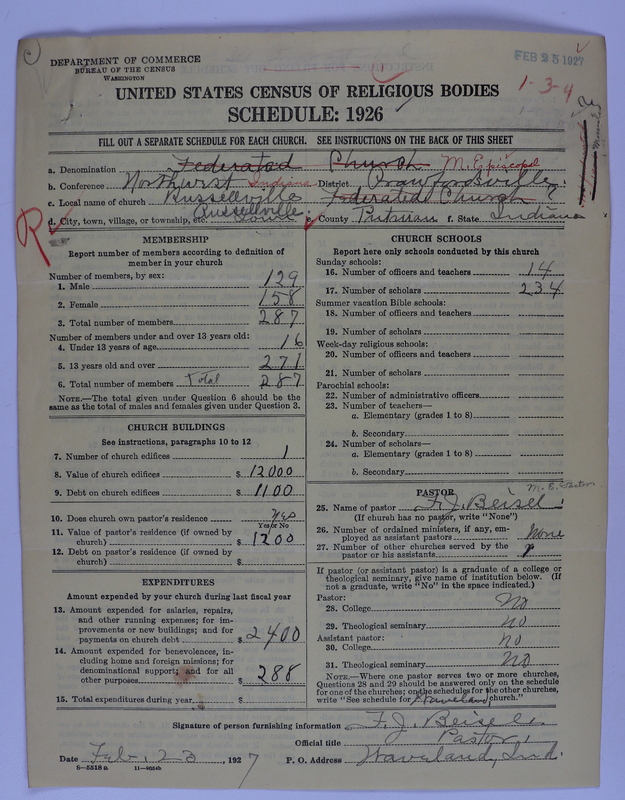 DEPARTMENT OF COMMERCE
BUREAU OF THE CENSUS
WASHINGTON
FEB 25 1927
1-3-4
UNITED STATES CENSUS OF RELIGIOUS BODIES
SCHEDULE: 1926
FILL OUT A SEPARATE SCHEDULE FOR EACH CHURCH. SEE INSTRUCTIONS ON THE BACK OF THIS SHEET
a. Denomination Federated Church M. Episcopal
b. Conference Northwest Indiana District Crawfordsville.
c. Local name of church Russellville Federated Church ?
d. City, town, village, or township, etc. Russellville e. County Putnam f. State Indiana
R
MEMBERSHIP
Report number of members according to definition of member in your church
Number of members, by sex:
1. Male 129
2. Female 158
3. Total number of members 287
Number of members under and over 13 years old:
4. Under 13 years of age 16
5. 13 years old and over 271
6. Total number of members Total 287
NOTE.—The total given under Question 6 should be same as the total of males and females given under Question 3.
CHURCH BUILDINGS
See instructions, paragraphs 10 to 12
7. Number of church edifices 1
8. Value of church edifices $ 12000
9. Debt on church edifices $ 1100
10. Does church own pastor's residence yes
Yes or No
11. Value of pastor's residence (if owned by church) $ 1200
12. Debt on pastor's residence (if owned by church) $
EXPENDITURES
Amount expended by your church during last fiscal year
13. Amount expended for salaries, repairs, and other running expenses; for improvements or new buildings; and for payments on church debt $ 2400
14. Amount expended for benevolences, including home and foreign missions; for denominational support; and for all other purposes $ 288
15. Total expenditures during year $
CHURCH SCHOOLS
Report here only schools conducted by this church
Sunday schools:
16. Number of officers and teachers 14
17. Number of scholars 234
Summer vacation Bible schools:
18. Number of officers and teachers
19. Number of scholars
Week-day religious schools:
20. Number of officers and teachers
21. Number of scholars
Parochial schools:
22. Number of administrative officers
23. Number of teachers—
a. Elementary (grades 1 to 8)
b. Secondary
24. Number of scholars—
a. Elementary (grades 1 to 8)
b. Secondary
PASTOR
M. E. Pastor
25. Name of pastor F. J. Beisel.
(If church has no pastor, write "None")
26. Number of ordained ministers, if any, employed as assistant pastors None
27. Number of other churches served by the pastor or his assistants
If pastor (or assistant pastor) is a graduate of a college or theological seminary, give name of institution below. (If not a graduate, write "No" in the space indicated.)
Pastor:
28. College No
29. Theological seminary no
Assistant pastor:
30. College no
31. Theological seminary No
NOTE.—Where one pastor serves two or more churches, Questions 28 and 29 should be answered only on the schedule for one of the churches; on the schedules for the other churches, write "See schedule for Waveland church."
Signature of person furnishing information F. J. Beisel.
Official title Pastor.
Date Feb. 23, 1927 P. O. Address Waveland, Ind.
8—5518a 11—9054b